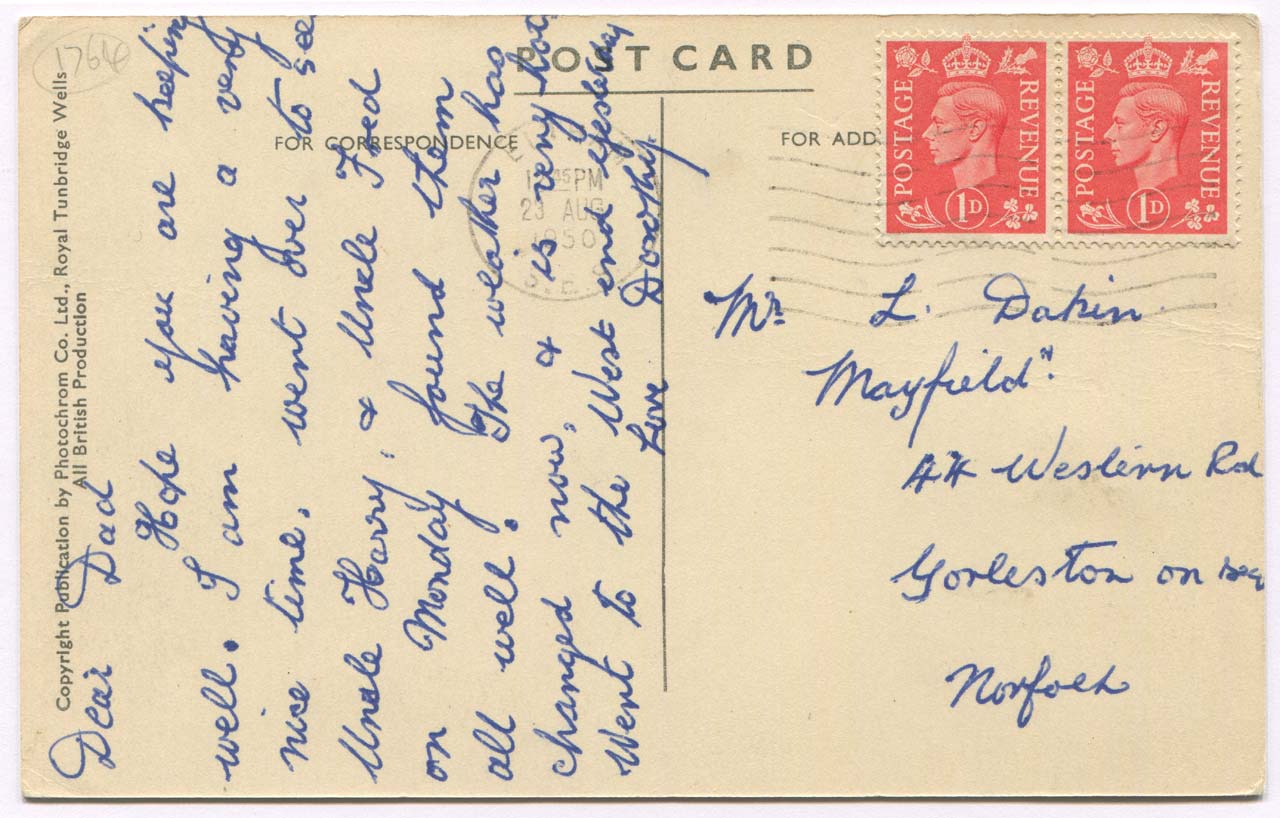 1764
POST CARD
FOR CORRESPONDENCE
FOR ADD
Copyright Publication by Photochrom Co. Ltd., Royal Tunbridge Wells
All British Production
Dear Dad
Hope you are keeping
well. I am having a very
nice time. went over to see
Unsle Harry. & Unsle Fred
on Monday found them
all well. The weather has
changed now, & is very hot
Went to the West end yesterday
Love Dorothy.
PM
29 AUG
1950
S.E.
POSTAGE REVENUE
1D
POSTAGE REVENUE
1D
Mr L. Dakin
Mayfield".
44 Western Rd
Gorleston on sea
Norfolk